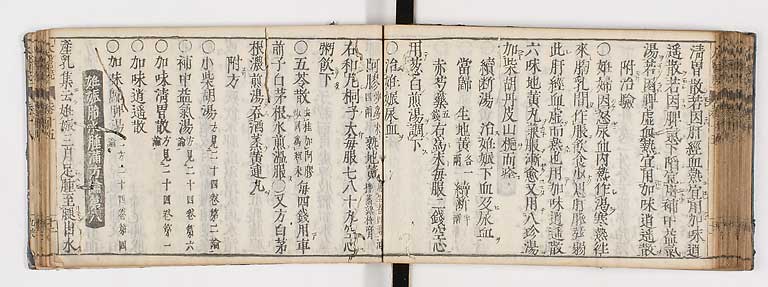 清胃散若因肝經血熱宜用加味逍
遙散若因脾氣下陷宜用補中益氣
湯若因脾虛血熱宜用加味逍遙散
附治驗
○妊婦因怒尿血內熱作渴寒熱往
來胸乳間作脹飲食少思肝脉弦弱
此肝經血虛而熱也用加味逍遙散
六味地黃丸兼服漸愈又用八珍湯
加柴胡丹皮山梔而痊
續斷湯 治妊娠下血及尿血
當歸 生地黃各一兩 續斷半兩
赤芍藥 右為末每服二錢空心
用葱白煎湯調下
○治妊娠尿血
阿膠 熟地黃
右和丸桐子大每服七八十丸空心
粥飲下
○五苓散 去桂加阿膠 每四錢用車
前子白茅根水煎溫服○又方白茅
根濃煎湯吞酒蒸黃連丸
附方
○小柴胡湯 方見二十四卷第二論
○補中益氣湯 方見二十四卷第六論
○加味清胃散 方見二十四卷第一論
○加味逍遙散
○加味歸脾湯 方見二十四卷第四
妊娠胎水腫滿方論第八
產乳集云妊娠三月足腫至腿出水